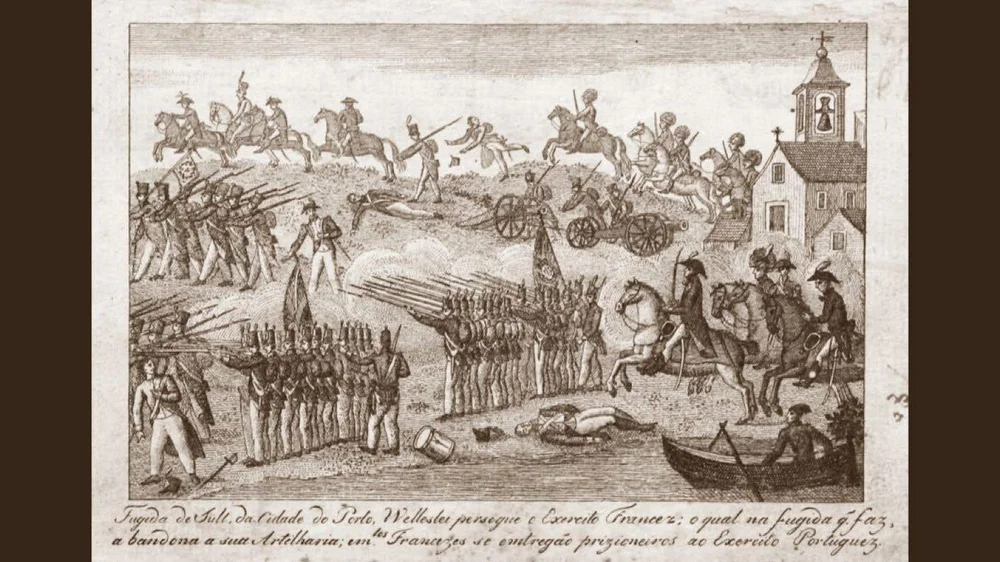 Fugida de Sult, da Cidade do Porto, Wellesley persegue o Exercito Francez; o qual na fugida q. faz,
abandona a sua Artelharia; em.tos Francezes se emtregão prizioneiros ao Exercito Portuguez.